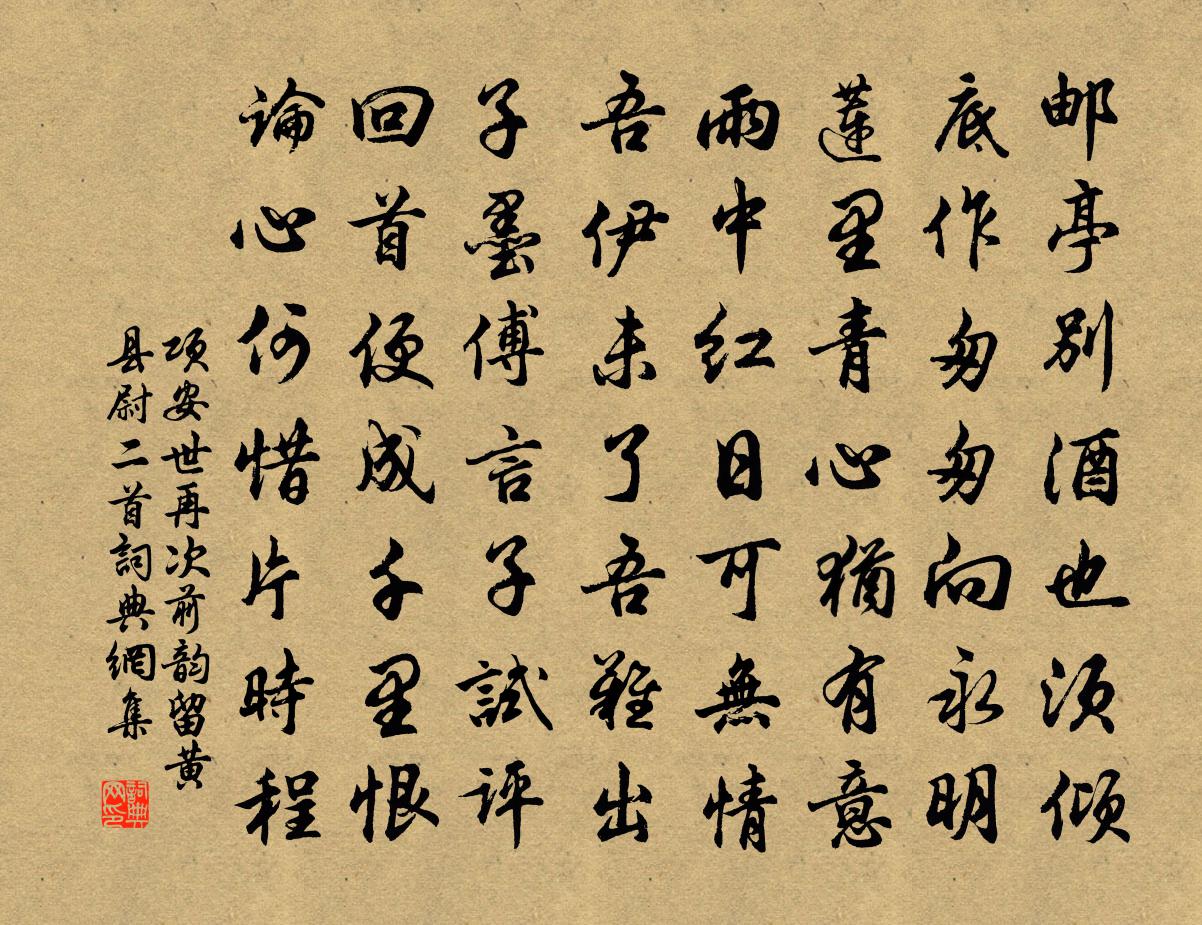 邮亭别酒也须倾
底作匆匆向永明
莲里青心犹有意
雨中红日可無情
吾伊未了吾難出
子墨傅言子試评
回首便成千里恨
論心何惜片時程
项安世再次前韵留黄
县尉二首詞典網集
詞典网印